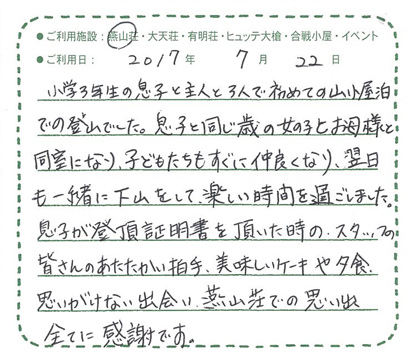 ●ご利用施設：燕山荘・大天荘・有明荘・ヒュッテ大槍・合戦小屋・イベント
●ご利用日：2017年 7月 22日
小学3年生の息子と主人と3人で初めての山小屋泊
での登山でした。息子と同じ歳の女の子とお母様と
同室になり、子どもたちもすぐに仲良くなり、翌日
も一緒に下山をして、楽しい時間を過ごしました。
息子が登頂証明書を頂いた時の、スタッフの
皆さんのあたたかい拍手、美味しいケーキや夕食、
思いがけない出会い、燕山荘での思い出
全てに感謝です。